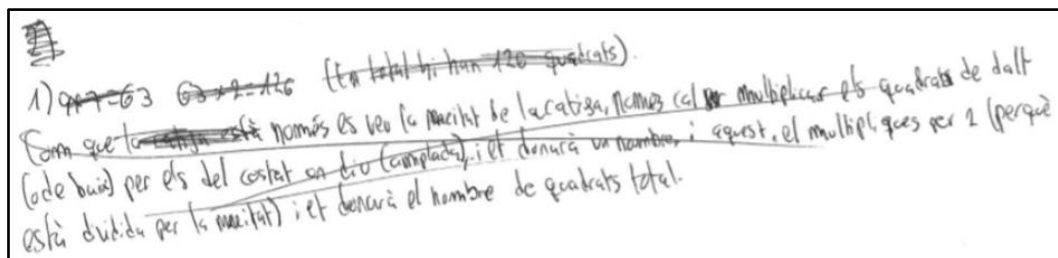 1) 9x7=63 63x2=126 (En total hi han 126 quadrats).
Com que la només es veu la meitat de la catifa, només cal multiplicar els quadrats de dalt
(o de baix) per els del costat on diu (amplada), i et donarà un nombre, i aquest, el multipliques per 2 (perquè
està dividida per la meitat) i et donarà el nombre de quadrats total.